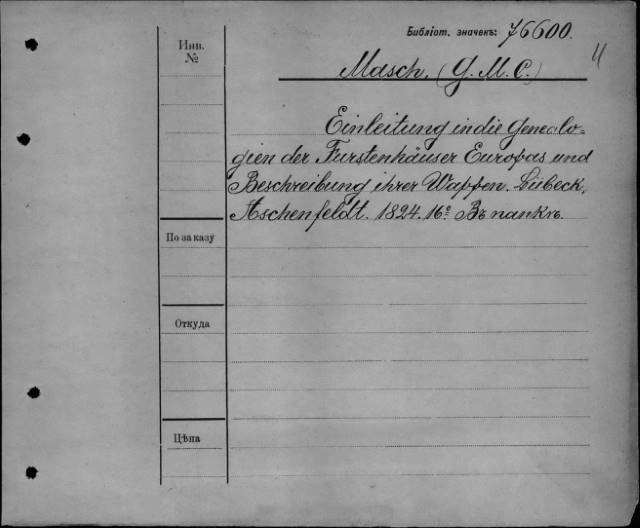 Библіот. значекъ: 76600.
Инв.
№
Masch. (G. M. C.)
Einleitung in die Genealo-
gien der Furstenhäuser Europas und
Beschreibung ihrer Wappen. Lübeck,
Aschenfeldt. 1824. 16º Въ папкѣ.
По заказу
Откуда
Цѣна